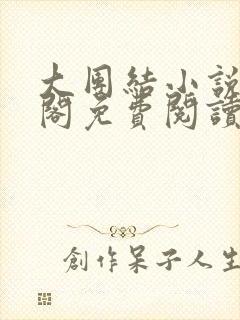 大團結小說
閣免費閱讀
創作呆子人生